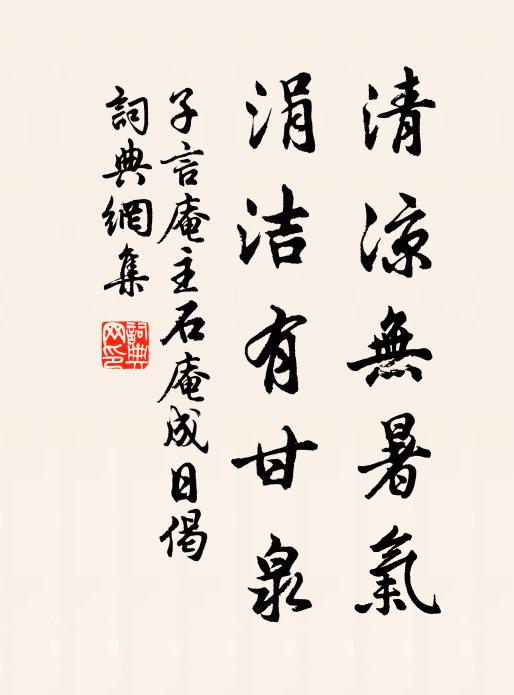 清涼無暑氣
涓洁有甘泉
子言庵主石庵成日偈
詞典網集
詞典網印